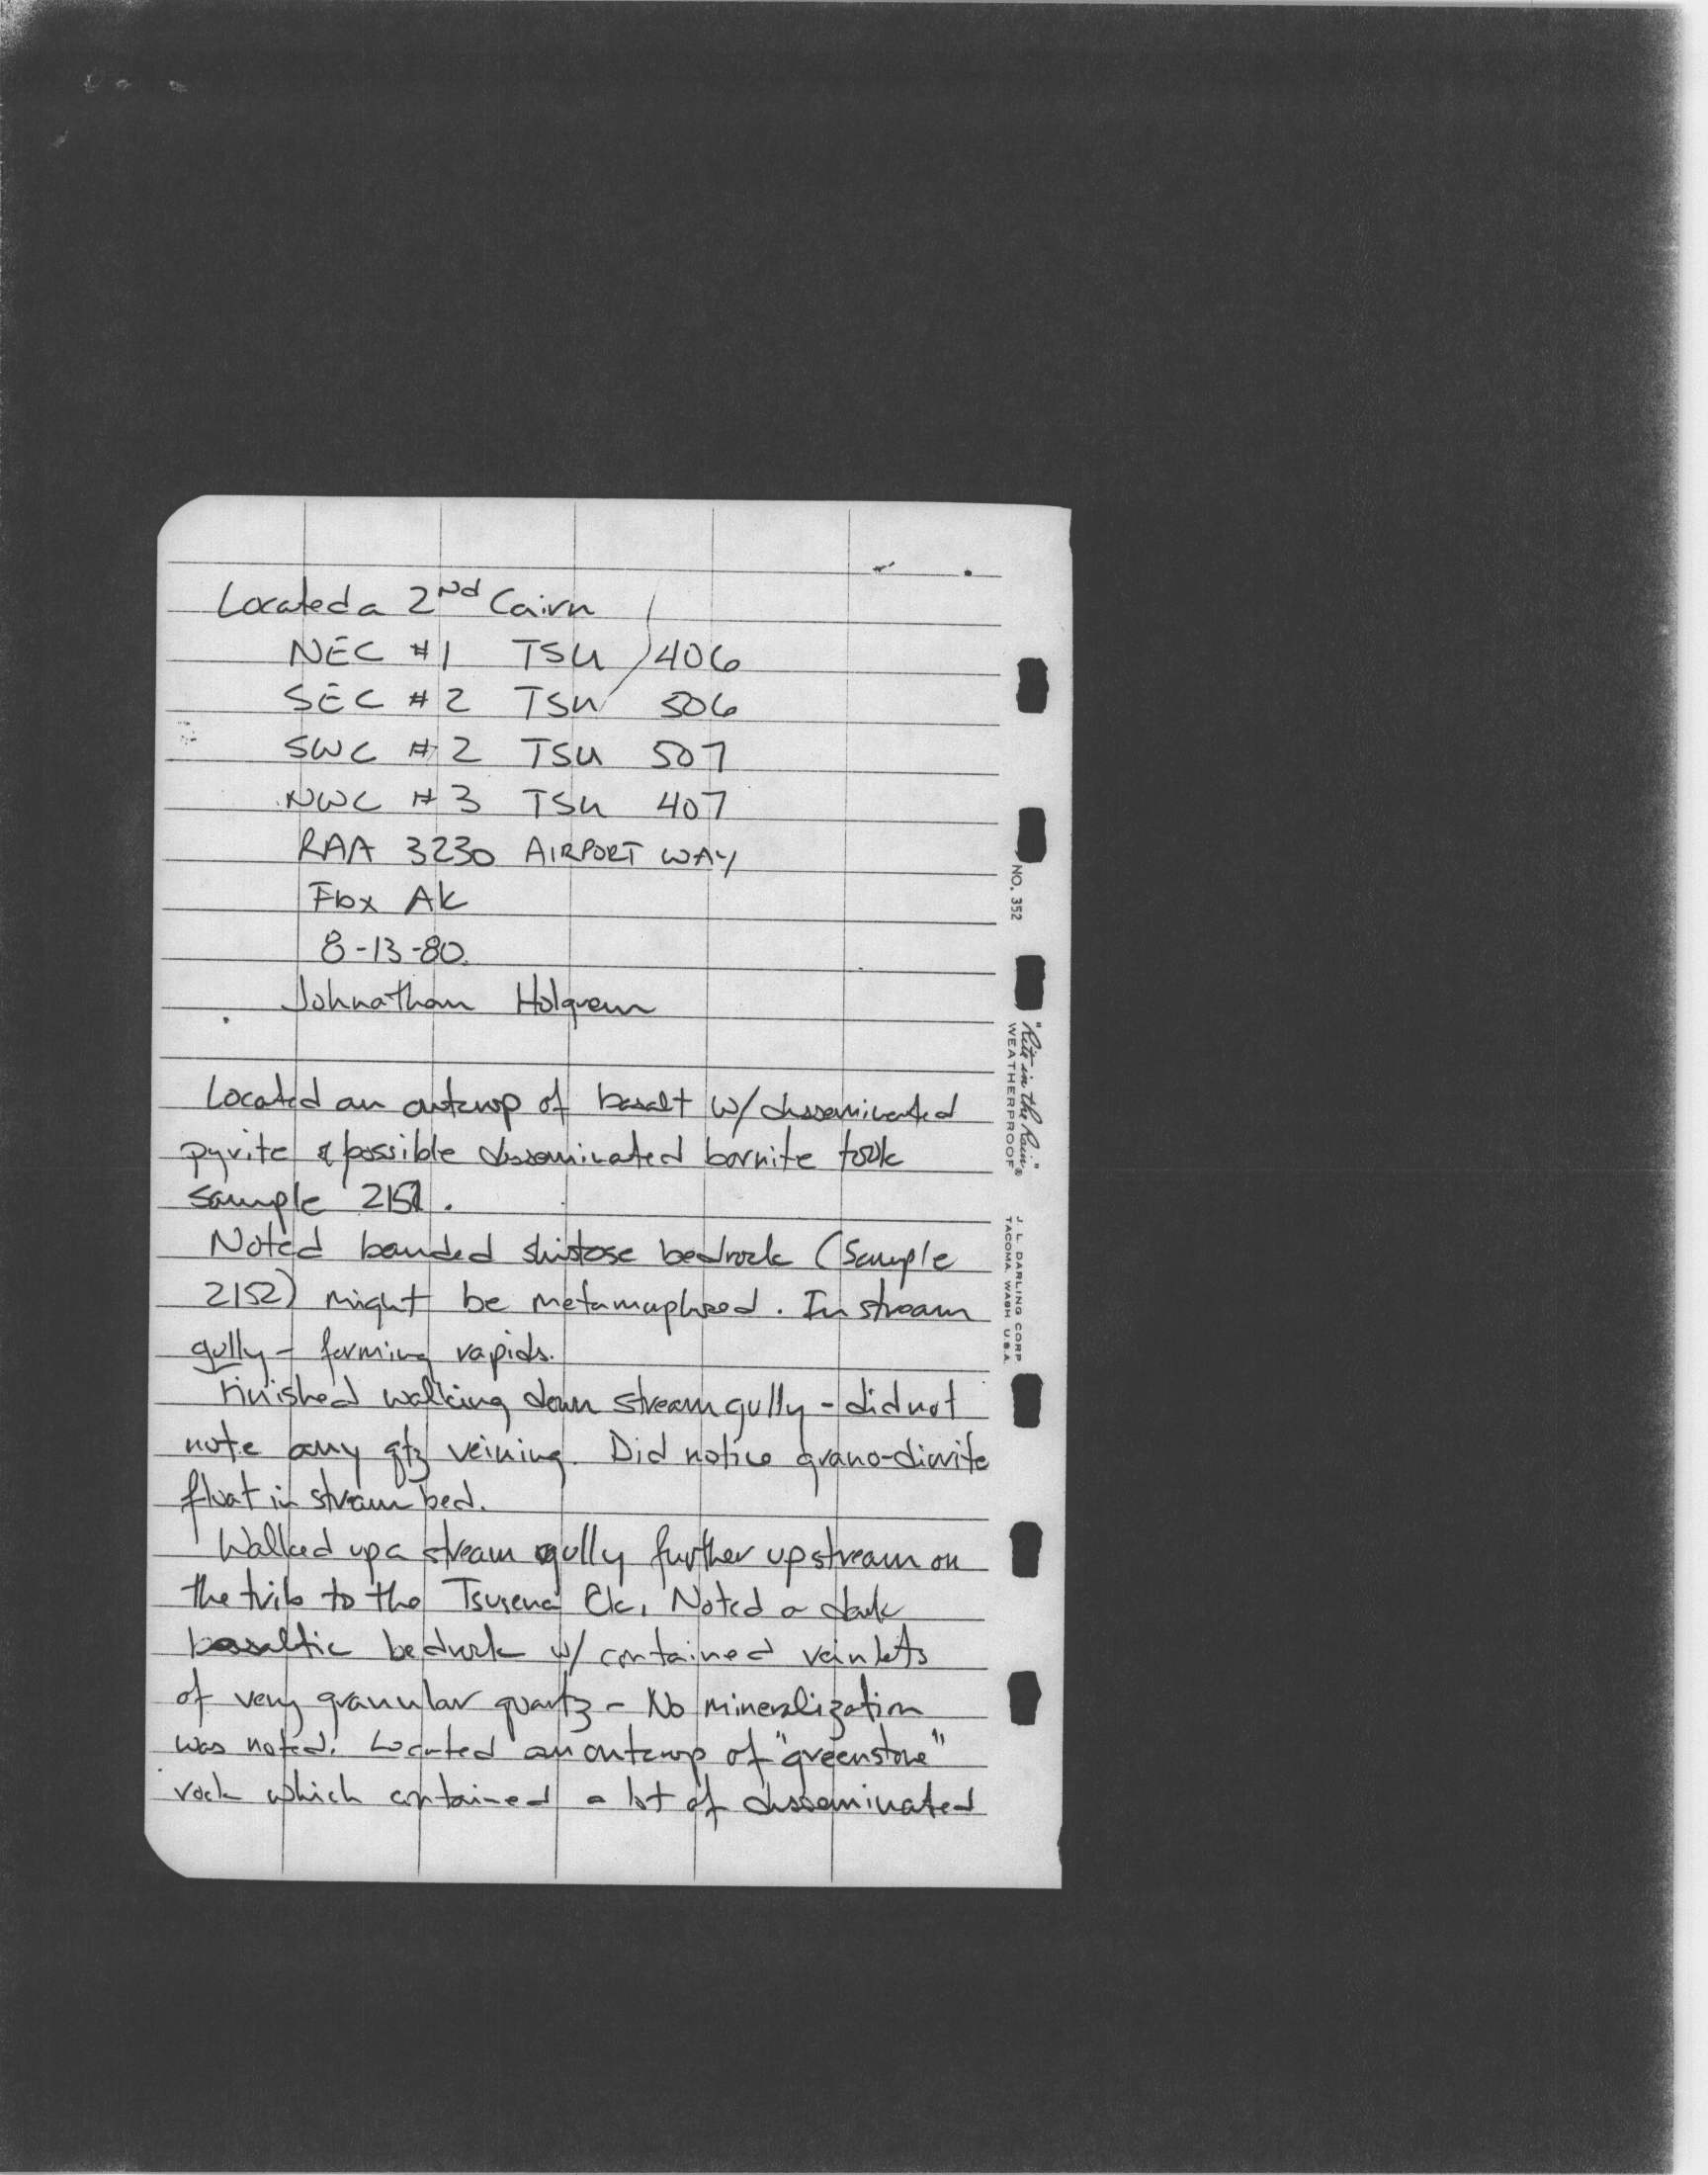 Located a 2nd Cairn
NEC #1 TSU 406
SEC #2 TSU 506
SWC #2 TSU 507
NWC #3 TSU 407
RAA 3230 AIRPORT WAY
Fbx AK
8-13-80.
Johnathan Holgrem
Located an outcrop of basalt w/ disseminated
pyrite & possible disseminated bornite took
sample 2151.
Noted banded shistose bedrock (Sample
2152) might be metamorphosed. In stream
gully - forming rapids.
Finished walking down stream gully - did not
note any qtz veining. Did notice grano-diorite
float in stream bed.
Walked up a stream gully further upstream on
the trib to the Tsusena Ck. Noted a dark
basaltic bedrock w/ contained veinlets
of very granular quartz - No mineralization
was noted. Located an outcrop of "greenstone"
rock which contained a lot of disseminated
NO. 352
"Rite in the Rain"®
WEATHERPROOF
J. L. DARLING CORP
TACOMA, WASH U.S.A.